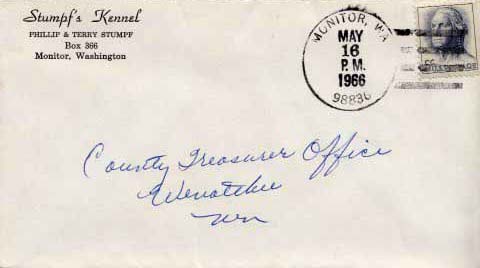 Stumpf's Kennel
PHILLIP & TERRY STUMPF
Box 366
Monitor, Washington
MONITOR, WA
MAY
16
P.M.
1966
98836
5c
County Treasurer Office
Wenatchee
Wn